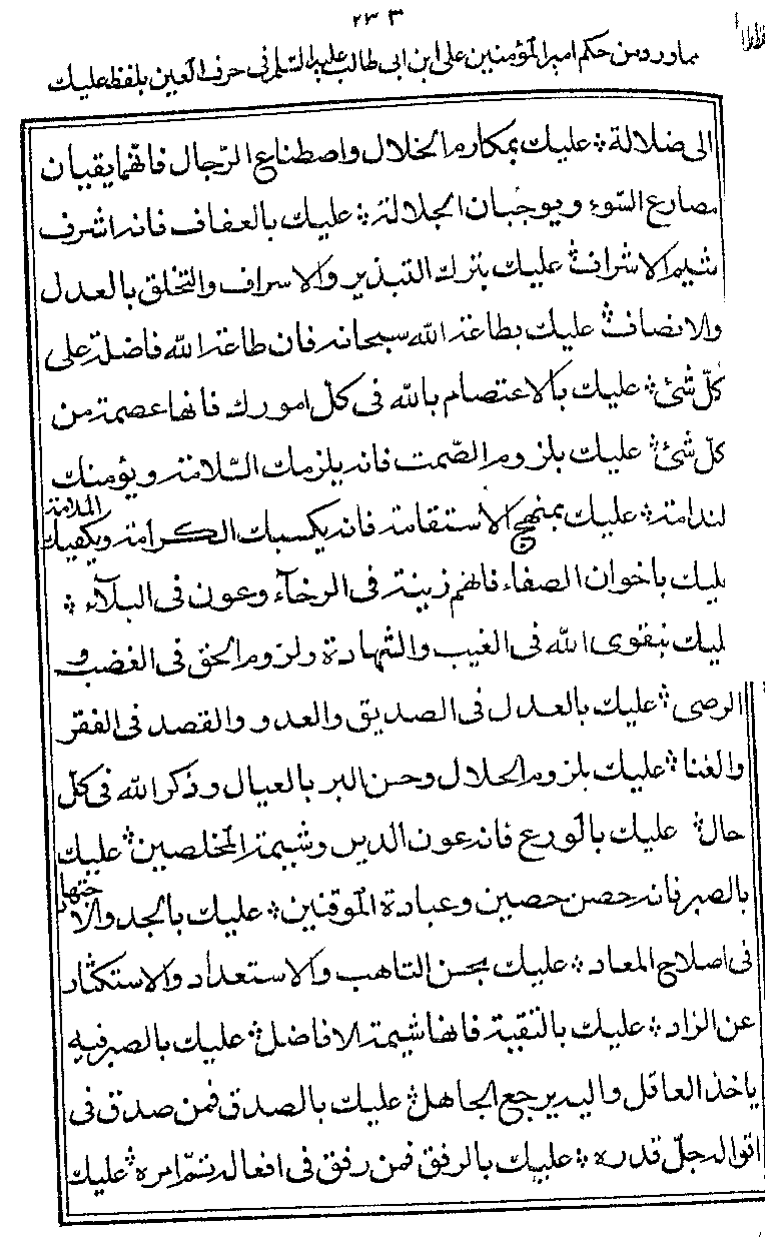 ٢٣٣
مما ورد من حكم امير المؤمنين علي ابن ابى طالب عليه السلم فى حرف العين بلفظ عليك
الى ضلالة ؞ عليك بمكارم الخلال واصطناع الرّجال فانهما يقيان
مصارع السّوء ويوجبان الجلالة ؞ عليك بالعفاف فانه اشرف
شيم الاشراف ؞ عليك بترك التبذير والاسراف والتخلق بالعدل
والانصاف ؞ عليك بطاعة الله سبحانه فان طاعة الله فاضلة على
كلّ شئ ؞ عليك بالاعتصام بالله فى كل امورك فانها عصمة من
كلّ شئ ؞ عليك بلزوم الصّمت فانه يلزمك السّلامة ويؤمنك
لندامة ؞ عليك بمنهج الاستقامة فانه يكسبك الكرامة ويكفيك الملامة
ليك باخوان الصفاء فانهم زينة فى الرخآء وعون فى البلآء ؞
ليك بتقوى الله فى الغيب والشهادة ولزوم الحق فى الغضب و
الرضى ؞ عليك بالعدل فى الصديق والعدو والقصد فى الفقر
والغنا ؞ عليك بلزوم الحلال وحسن البر بالعيال وذكر الله فى كل
حال ؞ عليك بالورع فانه عون الدين وشيمة المخلصين ؞ عليك
بالصبر فانه حصن حصين وعبادة الموقنين ؞ عليك بالجد والاجتهاد
فى اصلاح المعاد ؞ عليك بحسن التاهب والاستعداد والاستكثار
عن الزاد ؞ عليك بالتقية فانها شيمة الافاضل ؞ عليك بالصبر فبه
ياخذ العاقل واليه يرجع الجاهل ؞ عليك بالصدق فمن صدق فى
اقواله جلّ قدره ؞ عليك بالرفق فمن رفق فى افعاله تمّ امره ؞ عليك